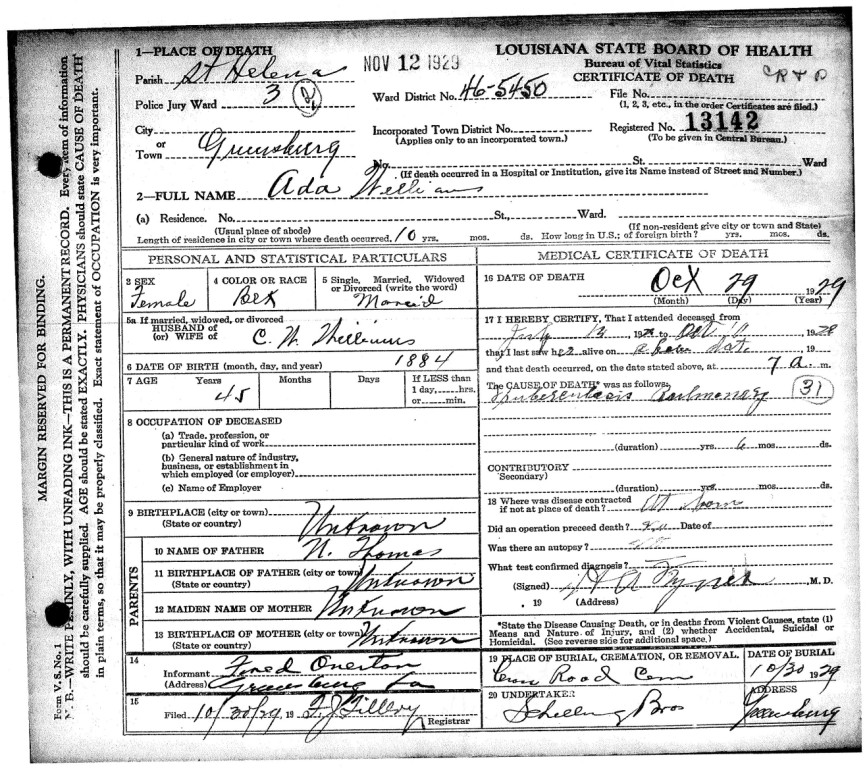 1—PLACE OF DEATH
NOV 12 1929
LOUISIANA STATE BOARD OF HEALTH
Bureau of Vital Statistics
CERTIFICATE OF DEATH
Parish St Helena
Police Jury Ward 3
Ward District No. 46-5450
File No.
(1, 2, 3, etc., in the order Certificates are filed.)
City
or
Town Greensburg
Incorporated Town District No.
(Applies only to an incorporated town.)
Registered No. 13142
(To be given in Central Bureau.)
No. St. Ward
(If death occurred in a Hospital or Institution, give its Name instead of Street and Number.)
2—FULL NAME Ada Williams
(a) Residence. No. St., Ward.
(Usual place of abode) (If non-resident give city or town and State)
Length of residence in city or town where death occurred. 10 yrs. mos. ds. How long in U.S.; of foreign birth? yrs. mos. ds.
PERSONAL AND STATISTICAL PARTICULARS
3 SEX
Female
4 COLOR OR RACE
Blk
5 Single, Married, Widowed
or Divorced (write the word)
Married
5a If married, widowed, or divorced
HUSBAND of
(or) WIFE of C. W. Williams
6 DATE OF BIRTH (month, day, and year) 1884
7 AGE Years Months Days If LESS than
1 day, hrs.
or min.
45
8 OCCUPATION OF DECEASED
(a) Trade, profession, or
particular kind of work
(b) General nature of industry,
business, or establishment in
which employed (or employer)
(c) Name of Employer
9 BIRTHPLACE (city or town)
(State or country) Unknown
PARENTS
10 NAME OF FATHER N. Thomas
11 BIRTHPLACE OF FATHER (city or town)
(State or country) Unknown
12 MAIDEN NAME OF MOTHER Unknown
13 BIRTHPLACE OF MOTHER (city or town)
(State or country) Unknown
14
Informant Fred Overton
(Address) Greensburg La
15
Filed 10/30/29 19 Registrar
MEDICAL CERTIFICATE OF DEATH
16 DATE OF DEATH Oct 29 1929
(Month) (Day) (Year)
17 I HEREBY CERTIFY, That I attended deceased from
July 19 to Oct 19
that I last saw her alive on above date 19
and that death occurred, on the date stated above, at 7 a. m.
The CAUSE OF DEATH* was as follows:
Tuberculosis Pulmonary 31
(duration) yrs. 6 mos. ds.
CONTRIBUTORY
(Secondary)
(duration) yrs. mos. ds.
18 Where was disease contracted
if not at place of death? At home
Did an operation preceed death? No Date of
Was there an autopsy?
What test confirmed diagnosis?
(Signed) M. D.
, 19 (Address)
*State the Disease Causing Death, or in deaths from Violent Causes, state (1)
Means and Nature of Injury, and (2) whether Accidental, Suicidal or
Homicidal. (See reverse side for additional space.)
19 PLACE OF BURIAL, CREMATION, OR REMOVAL. DATE OF BURIAL
Road Cem 10/30 1929
20 UNDERTAKER ADDRESS
Schilling Bros Greensburg
MARGIN RESERVED FOR BINDING.
Form V. S. No. 1
N. B.—WRITE PLAINLY, WITH UNFADING INK—THIS IS A PERMANENT RECORD. Every item of information
should be carefully supplied. AGE should be stated EXACTLY. PHYSICIANS should state CAUSE OF DEATH
in plain terms, so that it may be properly classified. Exact statement of OCCUPATION is very important.